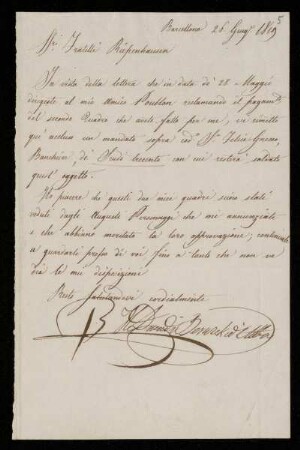 Barcellona 26 Giugo 1819
5
Sri Fratelli Riepenhausen
In vista della lettera che in data di 28 Maggio
dirigeste al mio Amico Poublon reclamando il pagamto
del secondo Quadro che avete fatto per me, vi rimetto
qui acclusa un mandato sopra codi Sri
Banchieri, di Scudi trecento con che resterà saldato
quest' oggetto.
Ho piacere che questi due miei quadri sieno stati
veduti dagli Augusti Personaggi che mi annunziate
e che abbiano meritata la loro approvazione; continuate
a guardarli presso di voi fino a tanto che non vi
dia le mie disposizioni
Resto salutandovi cordialmente